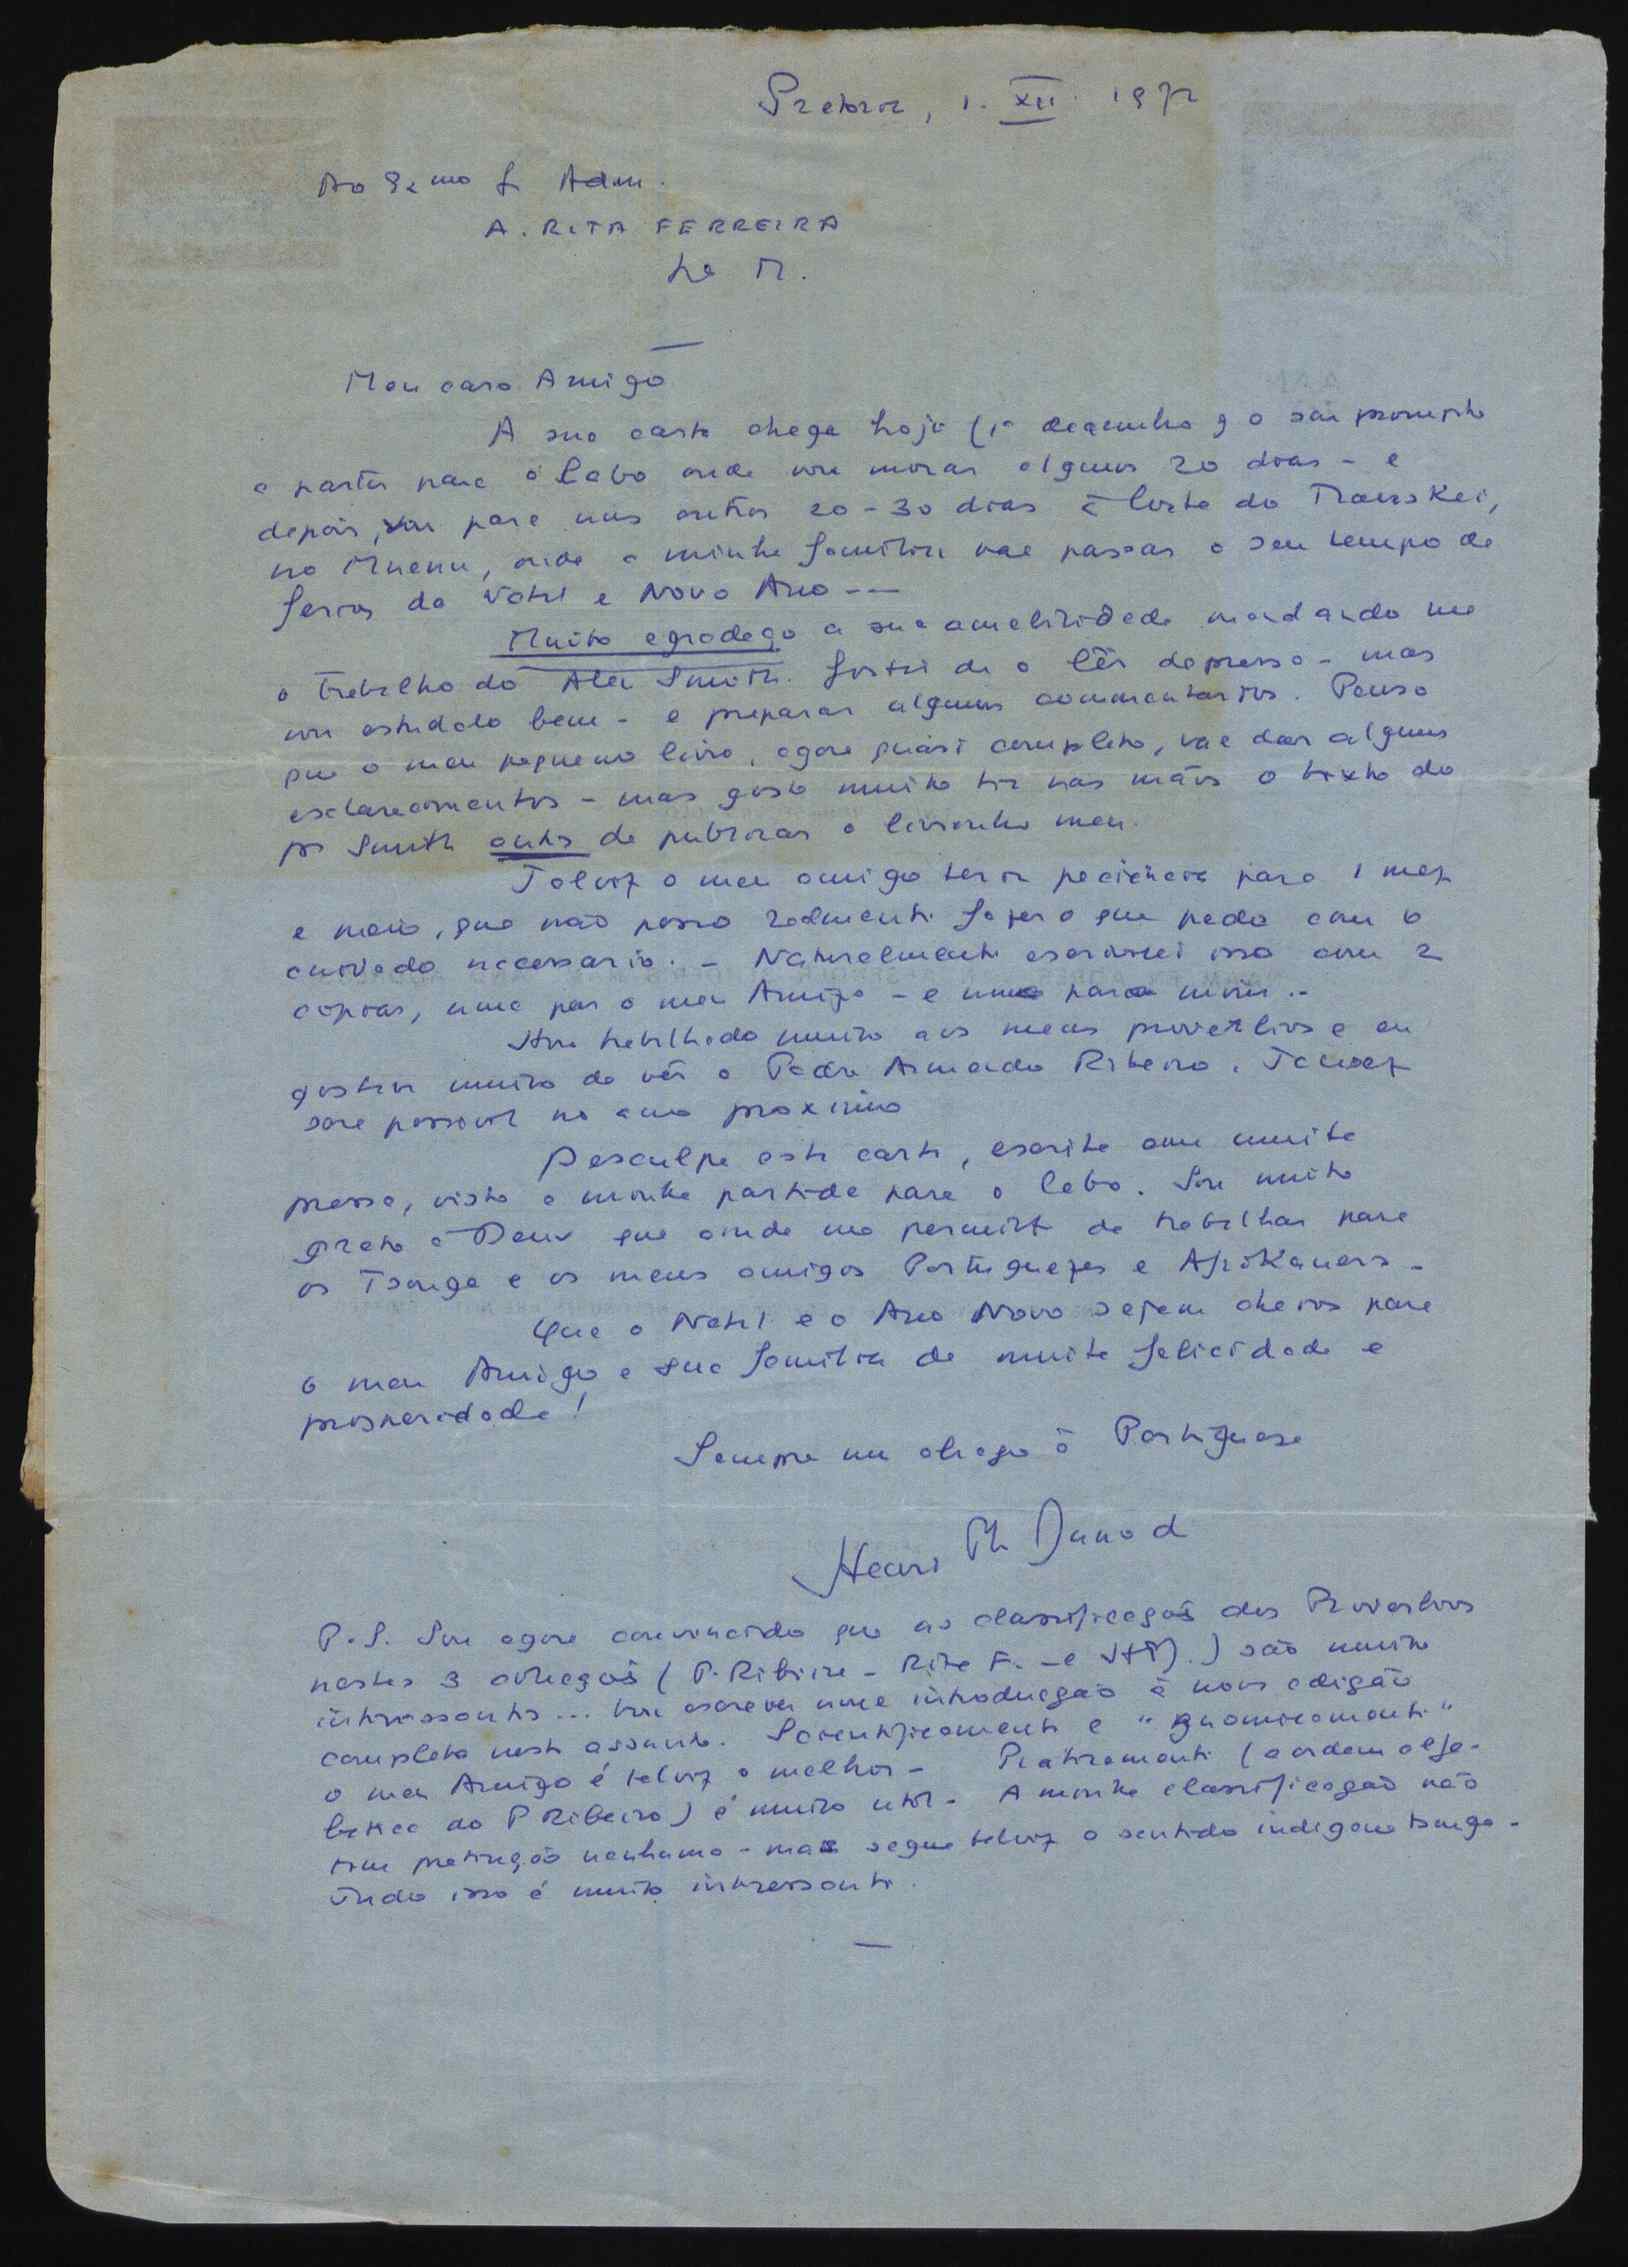 Pretoria, 1. XII. 1972
Ao Exmo Sr Adm.
A. RITA FERREIRA
L. M.
Meu caro Amigo
A sua carta chega hoje (1º dezembro e sou prompto
a partir para o Cabo onde vou morar alguns 20 dias - e
depois, vou para uns outros 20-30 dias à Costa do Transkei,
no Mnenu, onde a minha familia vae passar o seu tempo de
ferias do Natal e Novo Ano --
Muito agradeço a sua amabilidade mandando me
o trabalho do Alex Smith. Gostei de o lêr depressa - mas
vou estudalo bem - e preparar alguns commentarios. Penso
que o meu pequeno livro, agora quàsi completo, vae dar alguns
esclarecimentos - mas gosto muito ter nas mãos o texto do
Smith antes de publicar o livrinho meu.
Talvez o meu amigo teria paciência para 1 mez
e meio, que não posso realmente fazer o que pede com o
cuidado necessario. - Naturalmente escriverei isso com 2
copias, uma par o meu Amigo - e uma para mim. -
trabalhado muito aos meus proverbios e eu
gostava muito de vêr o Padre Armando Ribeiro. Talvez
sare possivel no ano proximo
Desculpe esta carta, escrita com muita
pressa, visto a minha partida para o Cabo. Sou muito
grato a Deus que ainda me permite de trabalhar para
os Tsonga e os meus amigos Portuguezes e Afrikaners -
Que o Natal e o Ano Novo sejam cheios para
o meu Amigo e sua familia de muita felicidade e
prosperidade!
Sempre um abraço à Portuguesa
Henri Ph Junod
P.S. Sou agora convincido que as classificaçoês dos Proverbios
nestes 3 (P. Ribeiro - Rita F. - e HPJ.) são muito
intressants ... Vou escrever uma introducção à nova edição
completa nest assunto. Scientificamente e "gnomicamente"
o meu Amigo é talvez o melhor - Praticamente (a ordem alfa-
betica do P Ribeiro) é muito util - A minha classificação não
tem pretenção nenhuma - mas segue talvez o sentido indigena tsonga -
Tudo isso é muito intressante.